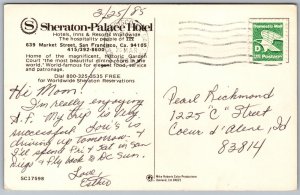 3/25/85
Sheraton-Palace Hotel
Hotels, Inns & Resorts Worldwide
The hospitality people of ITT
639 Market Street, San Francisco, Ca. 94105
415/392-8600
Home of the magnificent Garden Court
"the most beautiful dining room in the
world." World-famous for elegant food, service
and patronage.
Dial 800-325-3535 FREE
for Worldwide Sheraton Reservations
Hi Mom!
I'm really enjoying
S.F. My trip is very
successful. Lori's is
driving up tomorrow &
I'll spend Fri & Sat in San
Diego & fly back to DC Sun.
Love,
Esther
SC17598
D
US Postage
Pearl Richmond
1225 "C" Street
Coeur d'Alene, Id
83814
Mike Roberts Color Productions
Oakland, CA 94601